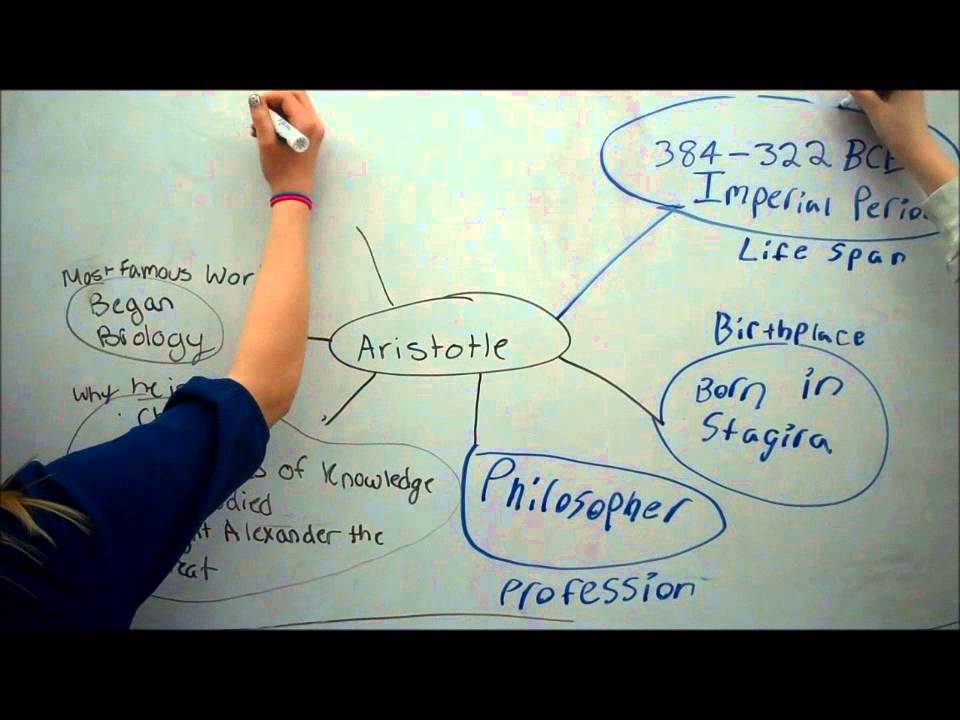 384-322 BCE
Imperial
Life Span
Most Famous
Began
Biology
Aristotle
Birthplace
Born in
Stagira
why he is
of Knowledge
Alexander the
Philosopher
Profession